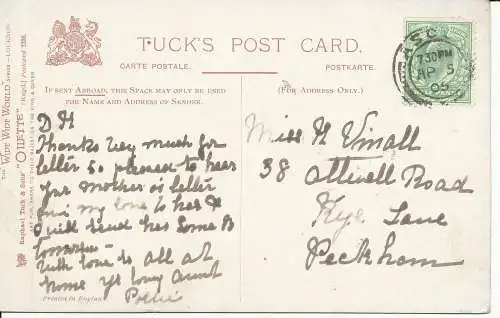 TUCK'S POST CARD.
CARTE POSTALE. POSTKARTE.
IF SENT ABROAD, THIS SPACE MAY ONLY BE USED
FOR NAME AND ADDRESS OF SENDER.
(FOR ADDRESS ONLY.)
THE "WIDE WIDE WORLD" SERIES — LONDON
Raphael Tuck & Sons' "OILETTE"
D H
Thanks very much for
letter so pleased to hear
mother is better
my love to her &
will send her some B
tomorrow
with love to all at
home yr loving aunt
Printed in England
7.30 PM
AP 5
05
Miss H Vinall
38 Attwell Road
Rye Lane
Peckham